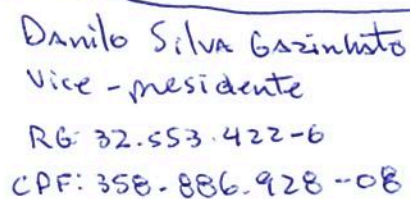 Danilo Silva Gazinhato
Vice-presidente
RG: 32.553.422-6
CPF: 358.886.928-08